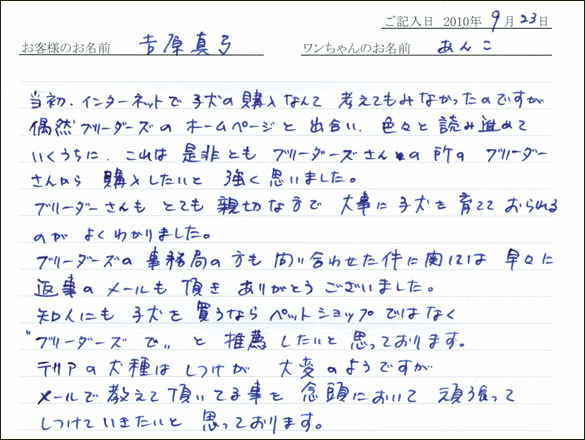 ご記入日 2010年 9月 23日
お客様のお名前 吉原真弓 ワンちゃんのお名前 あんこ
当初、インターネットで子犬の購入なんて 考えてもみなかったのですが
偶然ブリーダーズのホームページと出合い、色々と読み進めて
いくうちに、これは是非ともブリーダーズさんの所のブリーダー
さんから購入したいと強く思いました。
ブリーダーさんもとても親切な方で大事に子犬を育てておられる
のがよくわかりました。
ブリーダーズの事務局の方も問い合わせた件に関しては早々に
返事のメールも頂きありがとうございました。
知人にも子犬を買うならペットショップではなく
"ブリーダーズで"と推薦したいと思っております。
テリアの犬種はしつけが大変のようですが
メールで教えて頂いてる事を念頭において頑張って
しつけていきたいと思っております。